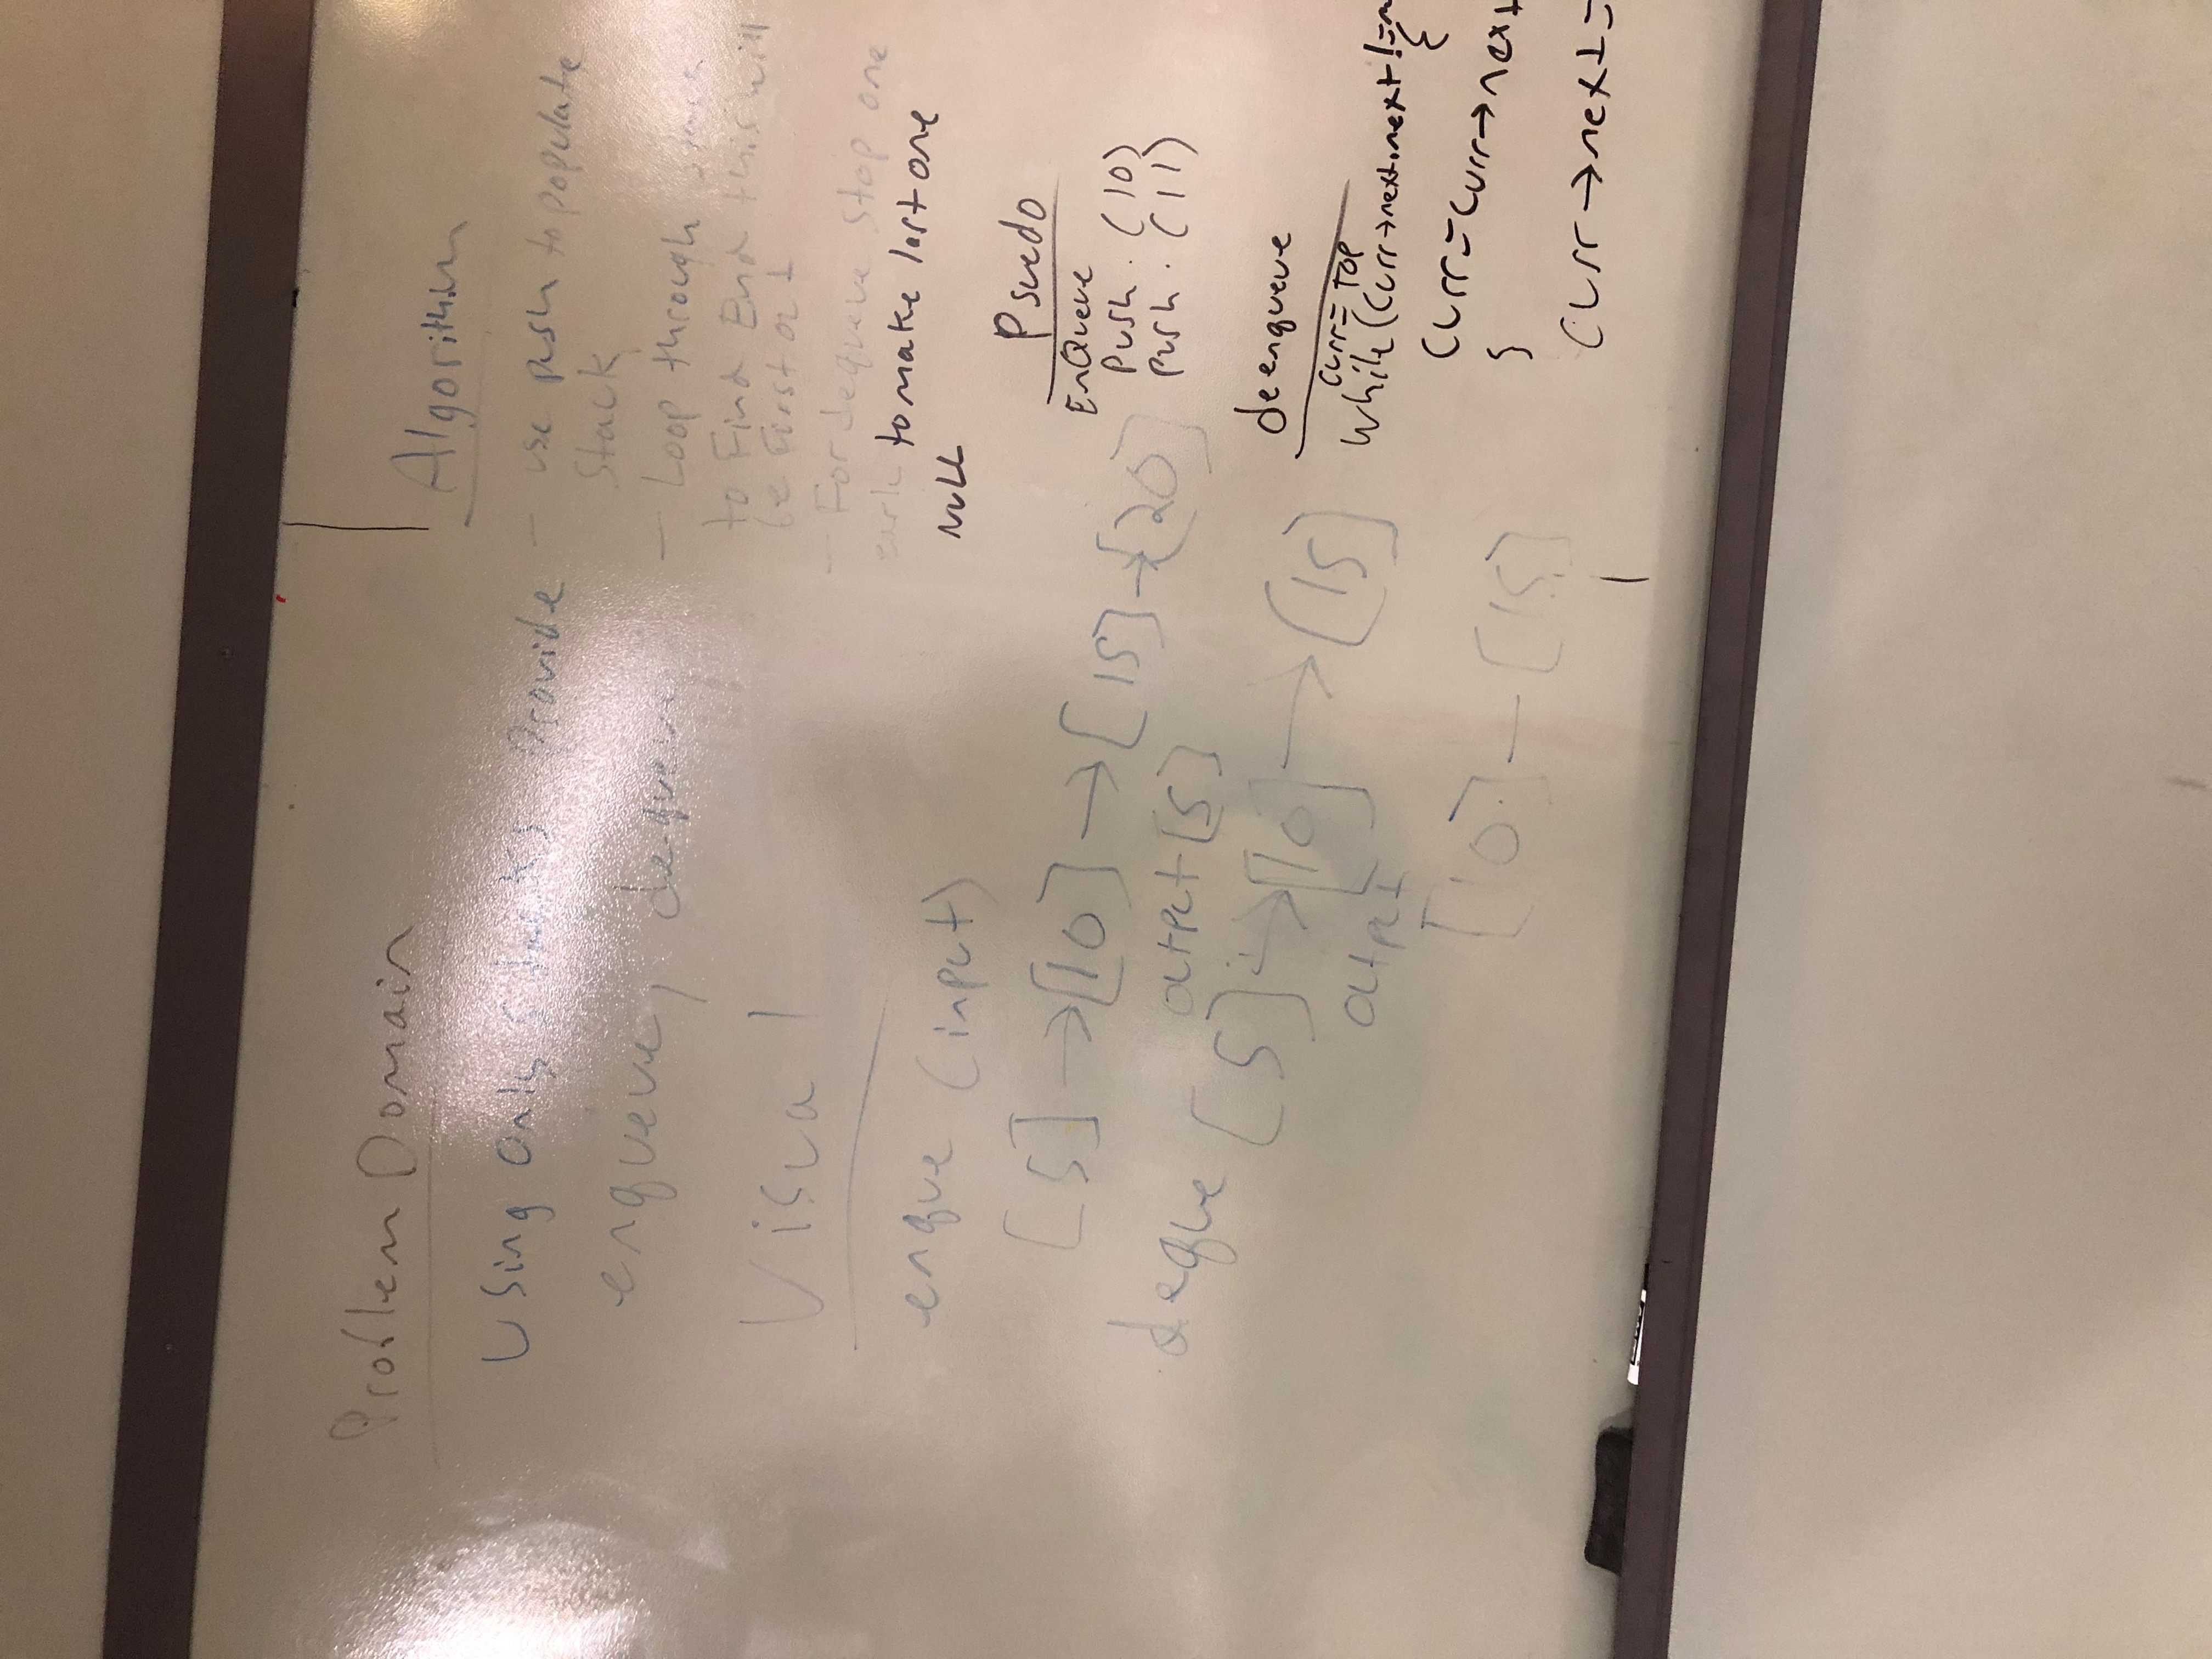 Problem Domain
Using Only Stacks Provide
enqueue, dequeue
Visual
enque (input)
[5] → [10] → [15] → [20]
deque output [5]
[5] → [10] → [15]
output
[10] — [15]
Algorithim
- use push to populate
Stack
- Loop through
to Find End this will
be First out
- For dequeue Stop one
early to make last one
NULL
Psuedo
EnQueue
Push . (10)
push . (11)
deenqueue
curr = Top
While (curr→next.next !=
{
Curr = Curr → next
}
Curr → next =